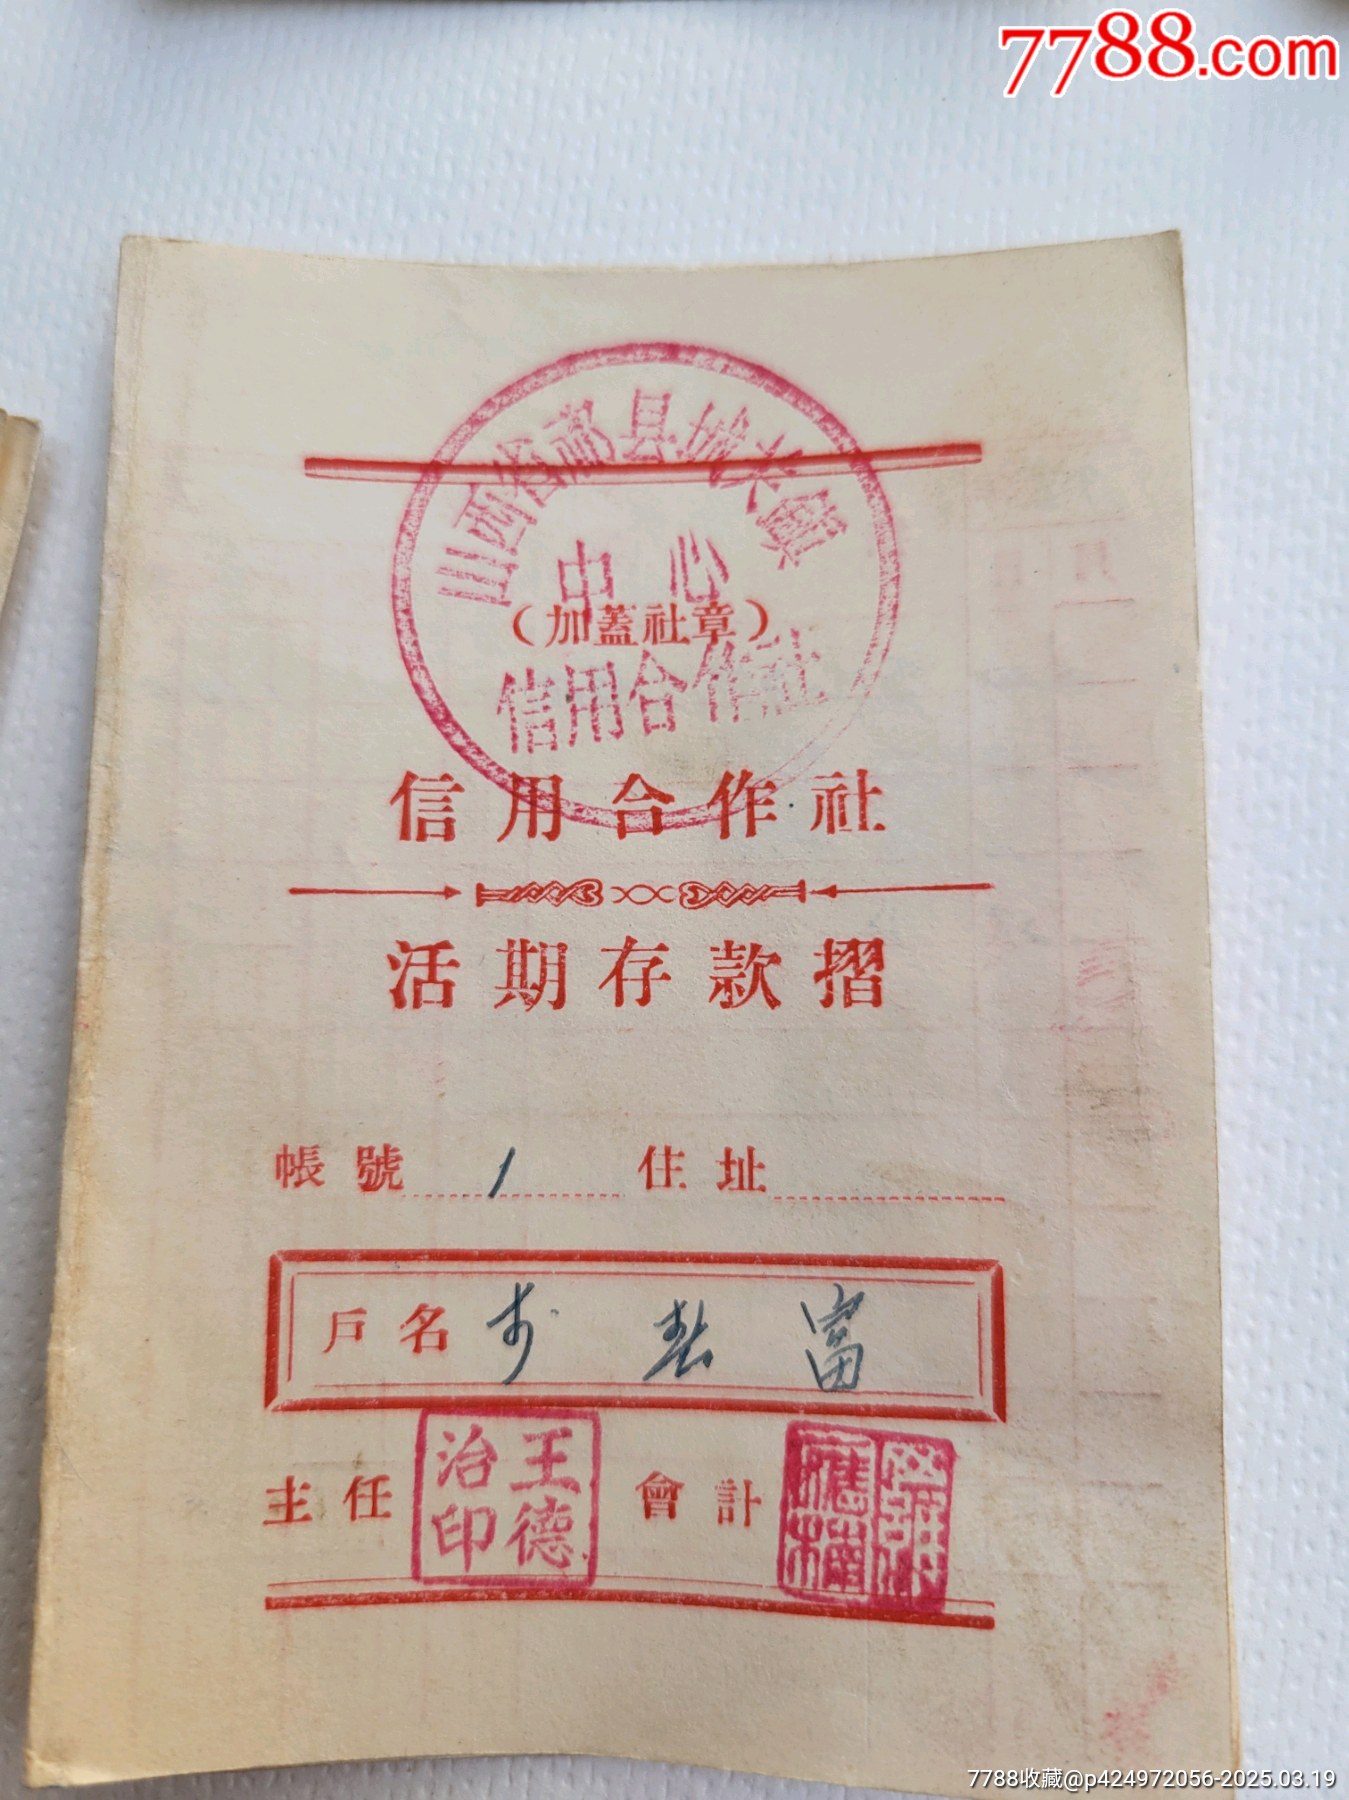 7788.com
山西省祁县城关鎮
中心
（加蓋社章）
信用合作社
信用合作社
活期存款摺
帳號 1 住址
戶名 富
主任 王德治印 會計
7788收藏@p424972056-2025.03.19